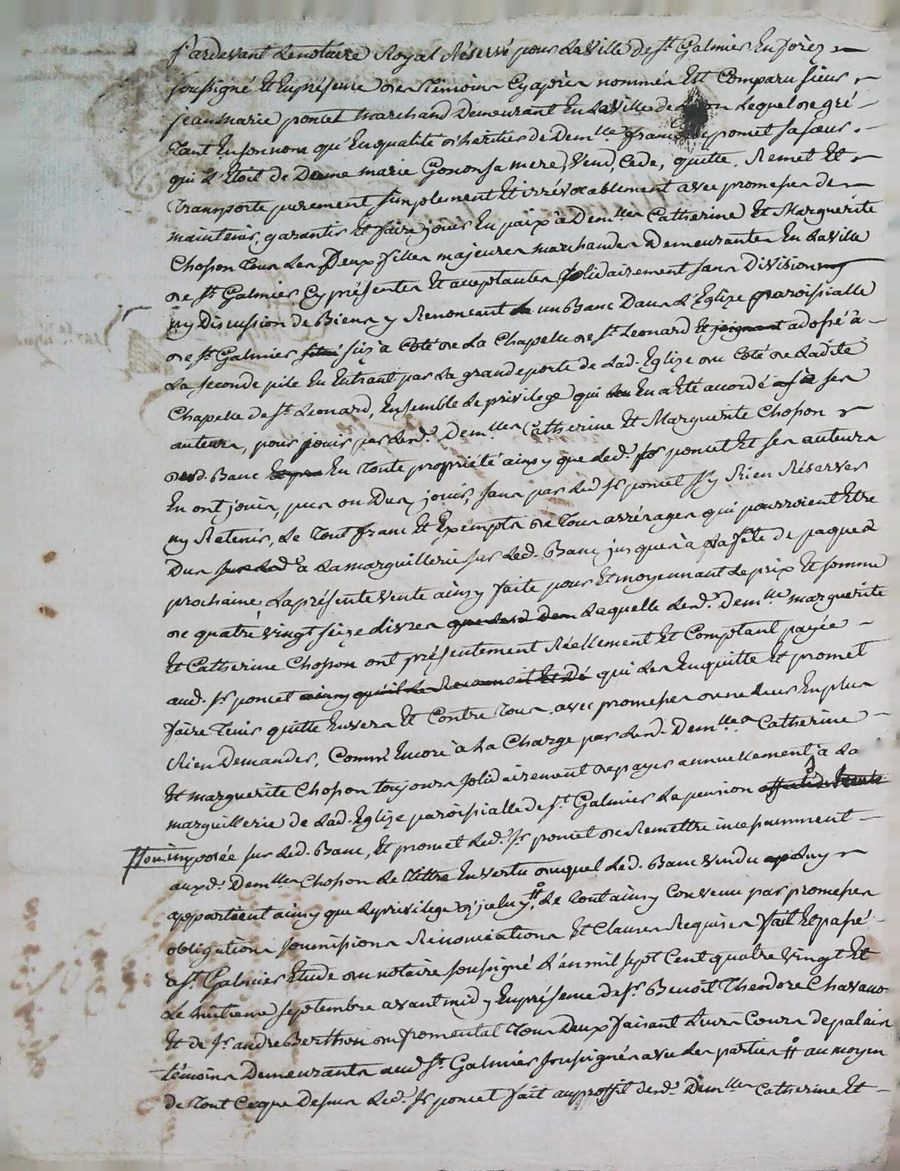 Pardevant Lenotaire Royal Réservé pour La Ville de st. Galmier En forez
soussigné Et Enprésence de témoins Cyaprès nommés Est Comparu sieur
jean marie poncet Marchand Demeurant En La Ville de Lequel de gré
tant En son nom qu'En qualité d'héritier de Demlle. poncet sa sœur
qui L'Etoit de Dame marie Gonon sa mere, Vend, Cede, quitte, Remet Et
transporte purement simplement Et irrévocablement avec promesses de
maintenir, garantir Et faire jouir En paix à Demlles Catherine Et Marguerite
Chosson tous Les Deux filles majeures marchandes Demeurantes En La Ville
de st. Galmier Cy présentes Et acceptantes solidairement sans Division
ny Discussion de Biens y Renoncant un Banc Dans L'Eglise paroissialle
de st. Galmier sis à Coté de La Chapelle de st. Leonard Et joignant adossé à
La seconde pile En Entrant par La grande porte de Lad. Eglise du Coté de Ladite
Chapelle de st. Leonard, Ensemble Le privilege qui En a Eté accordé à ses
auteurs, pour jouir par Lesd. Demlles Catherine Et Marguerite Chosson
dud. Banc En toute propriété ainsy que Led. sr poncet Et ses auteurs
En ont joui, pu ou Du jouir, sans par Led. sr poncet s'y Rien Réserver
ny Retenir, Le tout franc Et Exempts de tous arrérages qui pourroient Etre
Dus à La marguillerie sur Led. Banc jusques à La fête de paques
prochaine, La présente vente ainsy faite pour Et moyennant Le prix Et somme
de quatre vingt seize Livres que Lesd. Dem Laquelle Lesd. Demlle marguerite
Et Catherine Chosson ont présentement Réellement Et Comptant payée
aud. sr. poncet ainsy qu'il Le Reconnoit Et qui Les En quitte Et promet
faire tenir quitte Envers Et Contre tous, avec promesses de ne Leur En plus
Rien Demander, Comm'Encore à La Charge par Lesd. Demlles Catherine
Et marguerite Chosson toujours solidairement de payer annuellement à La
marguillerie de Lad. Eglise paroissialle de st. Galmier La pension
imposée sur Led. Banc, Et promet Led. sr. poncet de Remettre incessamment
auxd. Demlles Chosson Le titre En vertu duquel Led. Banc vendu Luy
appartient ainsy que Le privilege d'jceluy. Le tout ainsy Convenu par promesses
obligations soumissions Renonciations Et Clauses Requises fait Et passé
a st. Galmier Etude du notaire soussigné L'an mil sept Cent quatre Vingt Et
Le huitieme septembre avant midy Enprésence de sr. Benoit Theodore Chavano
Et de sr. andré Berthon du fromental tous Deux faisant Leurs Cours de palais
témoins Demeurants aud. st. Galmier soussignés avec Les parties au moyen
de tout Ceque Dessus Led. sr. poncet fait au proffit desd. Demlles Catherine Et